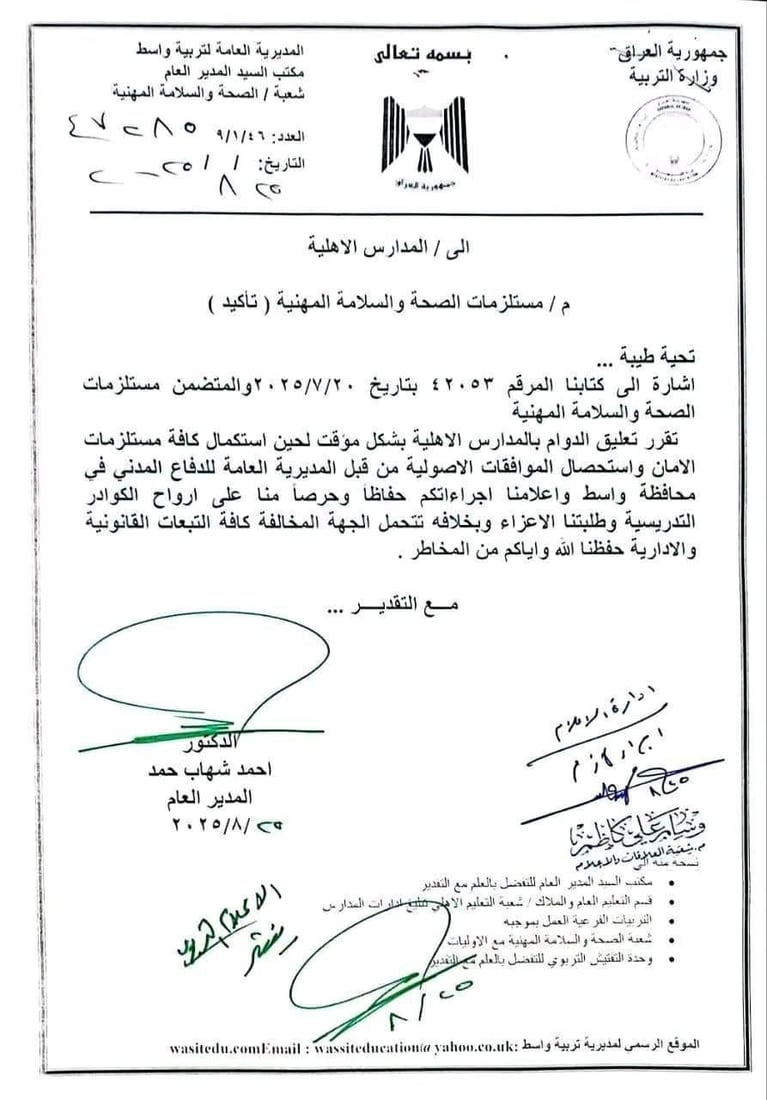 جمهورية العراق
وزارة التربية
بسمه تعالى
المديرية العامة لتربية واسط
مكتب السيد المدير العام
شعبة / الصحة والسلامة المهنية
العدد: ٩/١/٤٦
التاريخ:
جمهورية العراق
الى / المدارس الاهلية
م / مستلزمات الصحة والسلامة المهنية ( تأكيد )
تحية طيبة ...
اشارة الى كتابنا المرقم ٤٢٠٥٣ بتاريخ ٢٠٢٥/٧/٢٠والمتضمن مستلزمات
الصحة والسلامة المهنية
تقرر تعليق الدوام بالمدارس الاهلية بشكل مؤقت لحين استكمال كافة مستلزمات
الامان واستحصال الموافقات الاصولية من قبل المديرية العامة للدفاع المدني في
محافظة واسط واعلامنا اجراءاتكم حفاظاً وحرصاً منا على ارواح الكوادر
التدريسية وطلبتنا الاعزاء وبخلافه تتحمل الجهة المخالفة كافة التبعات القانونية
والادارية حفظنا الله واياكم من المخاطر .
مـــع التقديـــر ...
الدكتور
احمد شهاب حمد
المدير العام
٢٠٢٥/٨/٢٥
ادارة الاعلام
٨/٢٥
وسام علي كاظم
م. شعبة العلاقات والاعلام
نسخة منه الى
• مكتب السيد المدير العام للتفضل بالعلم مع التقدير
• قسم التعليم العام والملاك / شعبة التعليم الاهلي تبليغ ادارات المدارس
• التربيات الفرعية العمل بموجبه
• شعبة الصحة والسلامة المهنية مع الاوليات
• وحدة التفتيش التربوي للتفضل بالعلم مع التقدير
الاعلام
٨/٢٥
الموقع الرسمي لمديرية تربية واسط :wasitedu.comEmail : wassiteducation@yahoo.co.uk